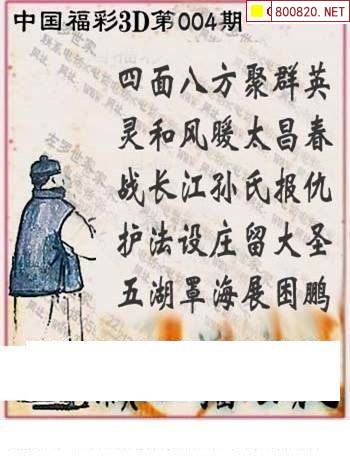 中国福彩3D第004期
800820.NET
四面八方聚群英
灵和风暖太昌春
战长江孙氏报仇
护法设庄留大圣
五湖罩海展困鹏